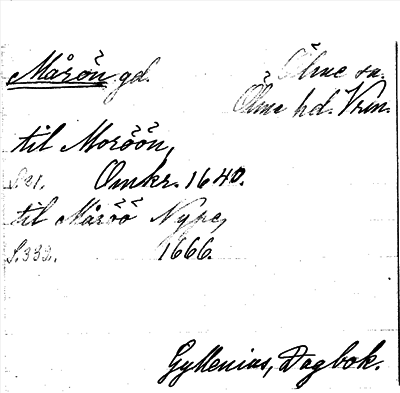 Måröň gd. Ölme sn.
Ölme hd. Vrm.
til Moröön,
S. 21. Omkr. 1640.
til Måröö Nype,
S. 332. 1666.
Gyllenius, Dagbok.